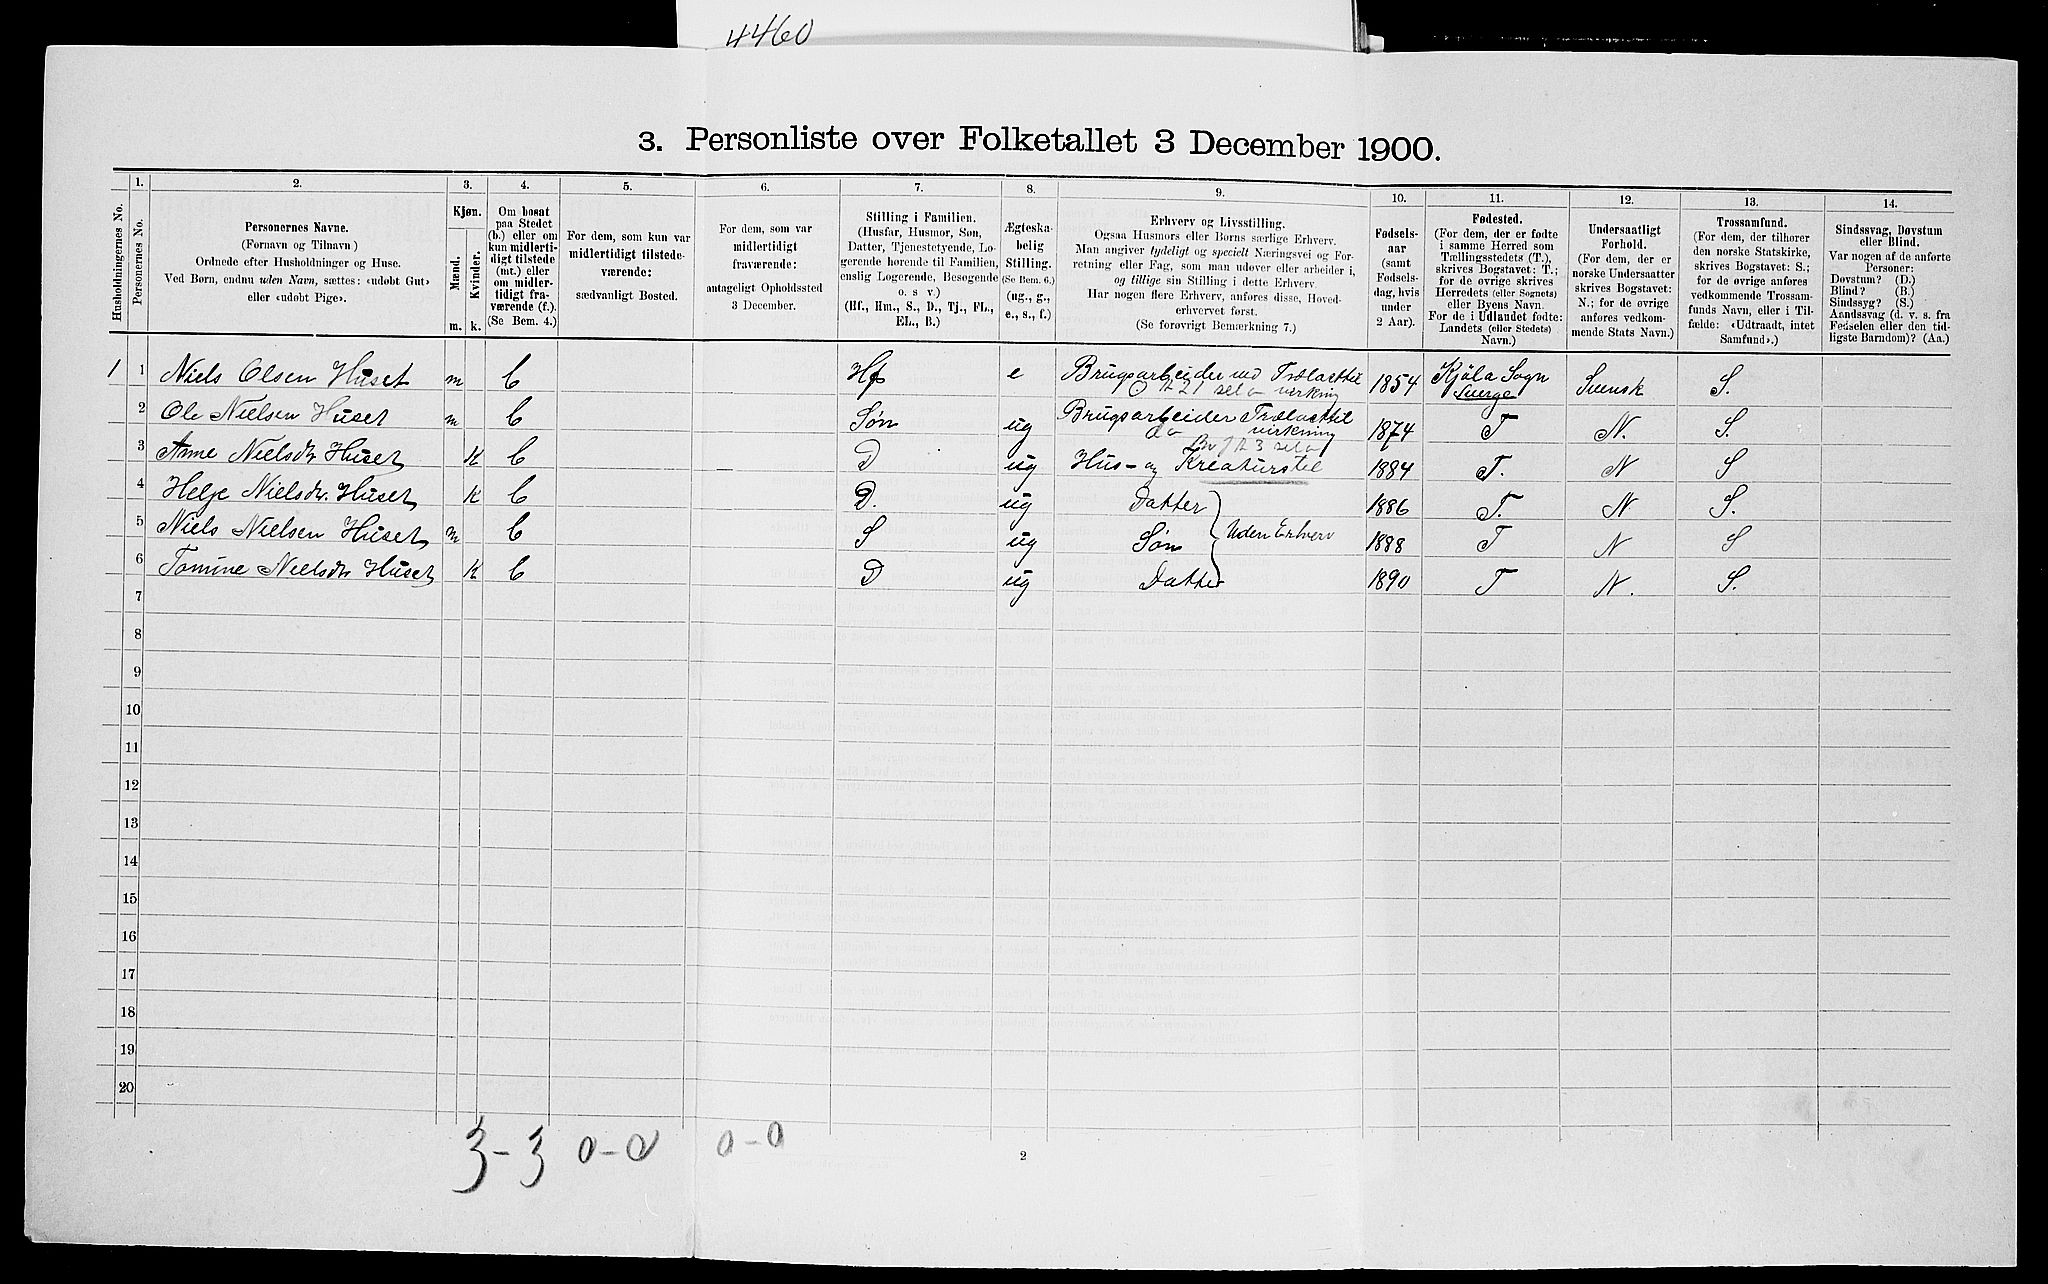 4460
3. Personliste over Folketallet 3 December 1900.
1. 2. 3. 4. 5. 6. 7. 8. 9. 10. 11. 12. 13. 14.
Husholdningernes No.
Personernes No.
Personernes Navne.
(Fornavn og Tilnavn)
Ordnede efter Husholdninger og Huse.
Ved Børn, endnu uden Navn, sættes: «udøbt Gut»
eller «udøbt Pige».
Kjøn.
Mænd.
Kvinder.
m. k.
Om bosat
paa Stedet
(b.) eller om
kun midlerti-
digt tilstede
(mt.) eller
om midler-
tidigt fra-
værende (f.).
(Se Bem. 4.)
For dem, som kun var
midlertidigt tilstede-
værende:
sædvanligt Bosted.
For dem, som var
midlertidigt
fraværende:
antageligt Opholdssted
3 December.
Stilling i Familien.
(Husfar, Husmor, Søn,
Datter, Tjenestetyende, Lo-
gerende hørende til Familien,
enslig Logerende, Besøgende
o. s v.)
(Hf., Hm., S., D., Tj., FL.,
EL., B.)
Ægteska-
belig
Stilling.
(Se Bem. 6.)
(ug., g.,
e., s., f.)
Erhverv og Livsstilling.
Ogsaa Husmors eller Børns særlige Erhverv.
Man angiver tydeligt og specielt Næringsvei og For-
retning eller Fag, som man udøver eller arbeider i,
og tillige sin Stilling i dette Erhverv.
Har nogen flere Erhverv, anføres disse, Hoved-
erhvervet først.
(Se forøvrigt Bemærkning 7.)
Fødsels-
aar
(samt
Fødsels-
dag, hvis
under
2 Aar).
Fødested.
(For dem, der er fødte
i samme Herred som
Tællingsstedets (T.),
skrives Bogstavet: T.;
for de øvrige skrives
Herredets (eller Sognets)
eller Byens Navn.
For de i Udlandet fødte:
Landets (eller Stedets)
Navn.)
Undersaatligt
Forhold.
(For dem, der er
norske Undersaatter
skrives Bogstavet:
N.; for de øvrige
anføres vedkom-
mende Stats Navn.)
Trossamfund.
(For dem, der tilhører
den norske Statskirke,
skrives Bogstavet: S.;
for de øvrige anføres
vedkommende Trossam-
funds Navn, eller i Til-
fælde: «Udtraadt, intet
Samfund».)
Sindssvag, Døvstum
eller Blind.
Var nogen af de anførte
Personer:
Døvstum? (D.)
Blind? (B.)
Sindssyg? (S.)
Aandssvag (d. v. s. fra
Fødselen eller den tid-
ligste Barndom)? (Aa.)
1 1 Niels Olsen Huset m b Hf e Brugsarbeider ved Trælasttil 1854 Kjöla Sogn Svensk S.
virkning Sverge
2 Ole Nielsen Huset m b Søn ug Brugsarbeider Trælasttil 1874 T N. S.
do virkning
3 Anne Nielsdr Huset K b D ug Hus- og Kreaturstel 1884 T. N S
4 Helje Nielsdr. Huset K b D. ug Datter 1886 T. N S.
5 Niels Nielsen Huset m b S ug Søn Uden Erhverv 1888 T N S
6 Tomine Nielsdr Huset K b D ug Datter 1890 T N. S.
7
8
9
10
11
12
13
14
15
16
17
18
19
20
3-3 0-0 0-0
2